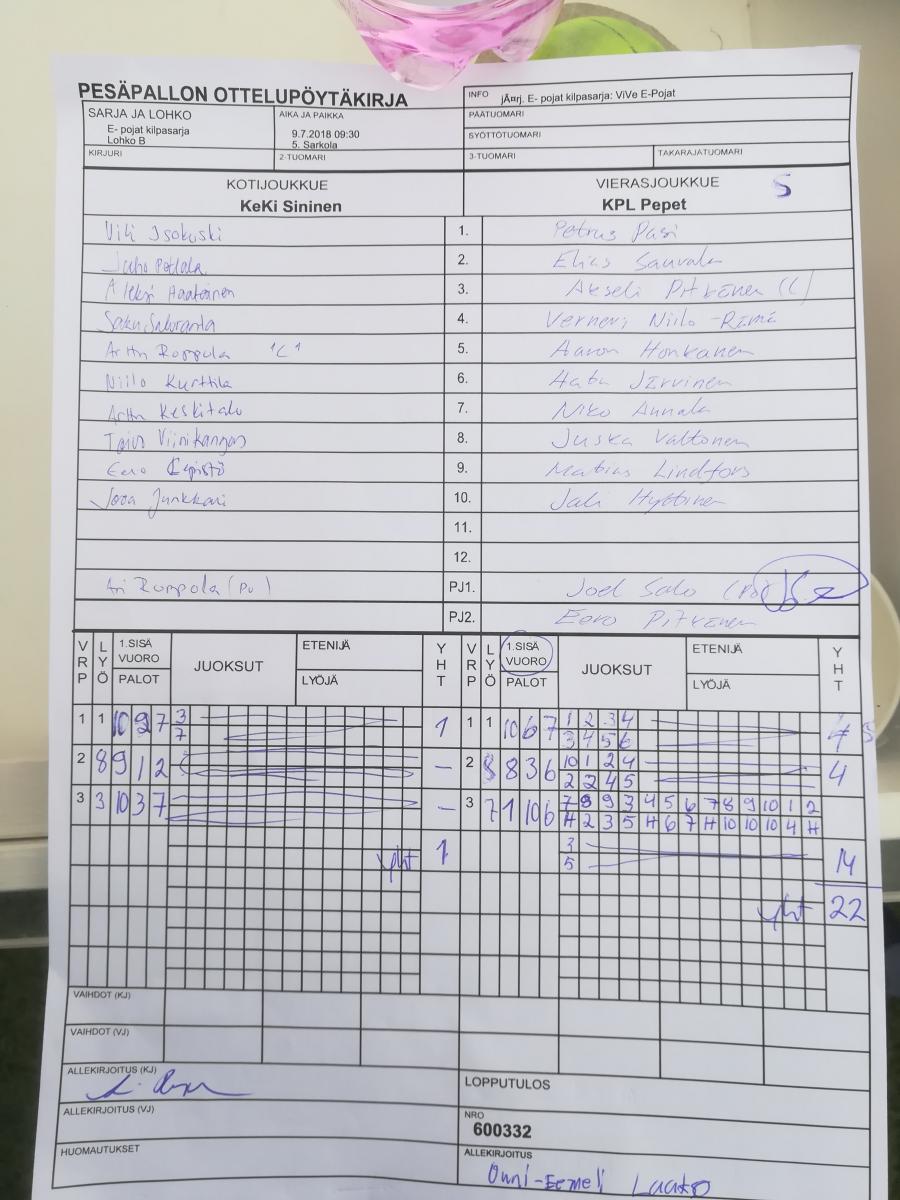 PESÄPALLON OTTELUPÖYTÄKIRJA
INFO jÃ¤rj. E- pojat kilpasarja: ViVe E-Pojat
SARJA JA LOHKO
E- pojat kilpasarja
Lohko B
AIKA JA PAIKKA
9.7.2018 09:30
5. Sarkola
PÄÄTUOMARI
SYÖTTÖTUOMARI
KIRJURI 2-TUOMARI 3-TUOMARI TAKARAJATUOMARI
KOTIJOUKKUE VIERASJOUKKUE 5
KeKi Sininen KPL Pepet
Isokoski 1. Petrus Pasi
Juho 2. Elias Sauvala
Aleksi 3. Akseli Pitkänen (C)
Saku 4. Verneri Niilo-Rämä
Arttu Roppola "C" 5. Aaron Honkanen
Niilo Kurttila 6. Järvinen
Arttu Keskitalo 7. Niko Annala
Viinikangas 8. Juska Valtonen
Eero Lepistö 9. Matias Lindfors
Joona Junkkari 10. Jali Hyttinen
11.
12.
Ari Roppola (PJ) PJ1. Joel Salo
PJ2. Eero Pitkänen
VRP LYÖ 1.SISÄ VUORO PALOT JUOKSUT ETENIJÄ LYÖJÄ YHT VRP LYÖ 1.SISÄ VUORO PALOT JUOKSUT ETENIJÄ LYÖJÄ YHT
1 1 10 2 7 3 1 1 1 10 6 7 1 2 3 4 4
7 3 4 5 6
2 8 9 1 2 – 2 8 8 3 6 10 1 2 4 4
2 2 4 5
3 3 10 3 7 – 3 7 1 10 6 7 8 9 3 4 5 6 7 8 9 10 1 2
H 2 3 5 H 6 7 H 10 10 10 4 H
yht 1 3 14
5
yht 22
VAIHDOT (KJ)
VAIHDOT (VJ)
ALLEKIRJOITUS (KJ)
LOPPUTULOS
ALLEKIRJOITUS (VJ)
NRO
600332
HUOMAUTUKSET
ALLEKIRJOITUS
Onni-Eemeli Laakso